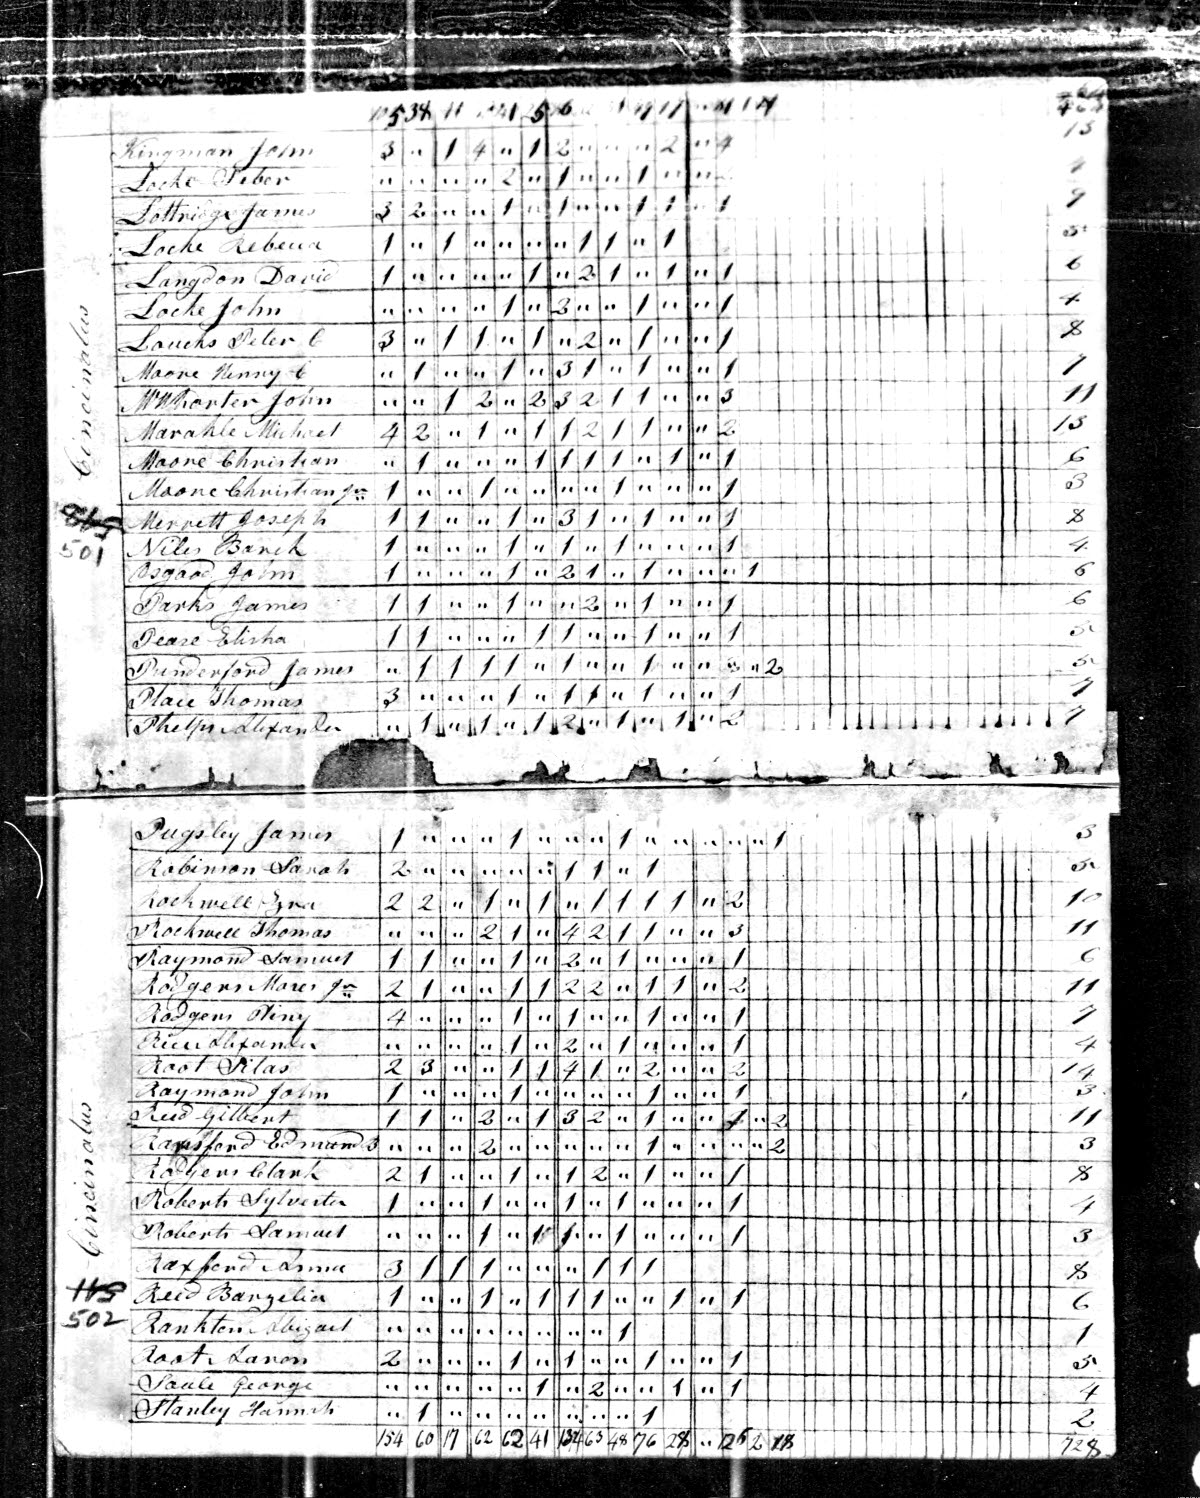 Kingman John 3 " 1 4 " 1 2 " " " 2 " 4 13
Locke Peter " " " " 2 " 1 " " 1 " "
Lottridge James 3 2 " " 1 " 1 " " 1 1 " 1 9
Locke Rebecca 1 " 1 " " " " 1 1 " 1 5
Langdon David 1 " " " " 1 " 2 1 " 1 " 1 6
Locke John " " " " 1 " 3 " " 1 " " 1 4
Loucks Peter C 3 " 1 1 " 1 " 2 " 1 " " 1 8
Moore Henry C " 1 " " 1 " 3 1 " 1 " " 1 7
McWhorter John " " 1 2 " 2 3 2 1 1 " " 3 11
Cincinatus
Marahle Michael 4 2 " 1 " 1 1 2 1 1 " " 2 13
Moore Christian " 1 " " " 1 1 1 1 " 1 " 1 6
Moore Christian Jr 1 " " 1 " " " " 1 " " " 1 3
Merrett Joseph 1 1 " " 1 " 3 1 " 1 " " 1 8
501
Niles 1 " " " 1 " 1 " 1 " " " 1 4
Osgood John 1 " " " 1 " 2 1 " 1 " " " 1 6
Parks James 1 1 " " 1 " " 2 " 1 " " 1 6
Pease Elisha 1 1 " " " 1 1 " " 1 " " 1 5
Punderford James " 1 1 1 1 " 1 " " 1 " " " 2 5
Place Thomas 3 " " " 1 " 1 1 " 1 " " 1 7
Phelps Alexander " 1 " 1 " 1 2 " 1 " 1 " 2 7
Pugsley James 1 " " " 1 " " " 1 " " " " " 1 3
Robinson Sarah 2 " " " " " 1 1 " 1 5
Rockwell Ezra 2 2 " 1 " 1 " 1 1 1 1 " 2 10
Rockwell Thomas " " " 2 1 " 4 2 1 1 " " 3 11
Raymond Samuel 1 1 " " 1 " 2 " 1 " " " 1 6
Rodgers Moses Jr 2 1 " " 1 1 2 2 " 1 1 " 2 11
Rodgers Pliny 4 " " " 1 " 1 " " 1 " " 1 7
Rice Alexander " " " " 1 " 2 " 1 " " " 1 4
Root Silas 2 3 " " 1 1 4 1 " 2 " " 2 14
Raymond John 1 " " " 1 " " " " 1 " " 1 3
Reed Gilbert 1 1 " 2 " 1 3 2 " 1 " " " 2 11
Ransford Edmund B " " " 2 " " " " " 1 " " " " 2 3
Rodgers Clark 2 1 " " 1 " 1 2 " 1 " " 1 8
Cincinatus
Roberts Sylvester 1 " " 1 " " 1 " 1 " " " 1 4
Roberts Samuel " " " 1 " 1 " 1 " " " 1 3
Raxford Anna 3 1 1 1 " " " " 1 1 1 8
Reed Barzelia 1 " " 1 " 1 1 1 " " 1 " 1 6
502
Abigail " " " " " " " " 1 1
Root Aaron 2 " " " 1 " 1 " " 1 " " 1 5
Soule George " " " " " 1 " 2 " " 1 " 1 4
Stanley Hannah " 1 " " " " " " " 1 2
154 60 17 62 62 41 132 63 48 76 28 " 126 2 18 728